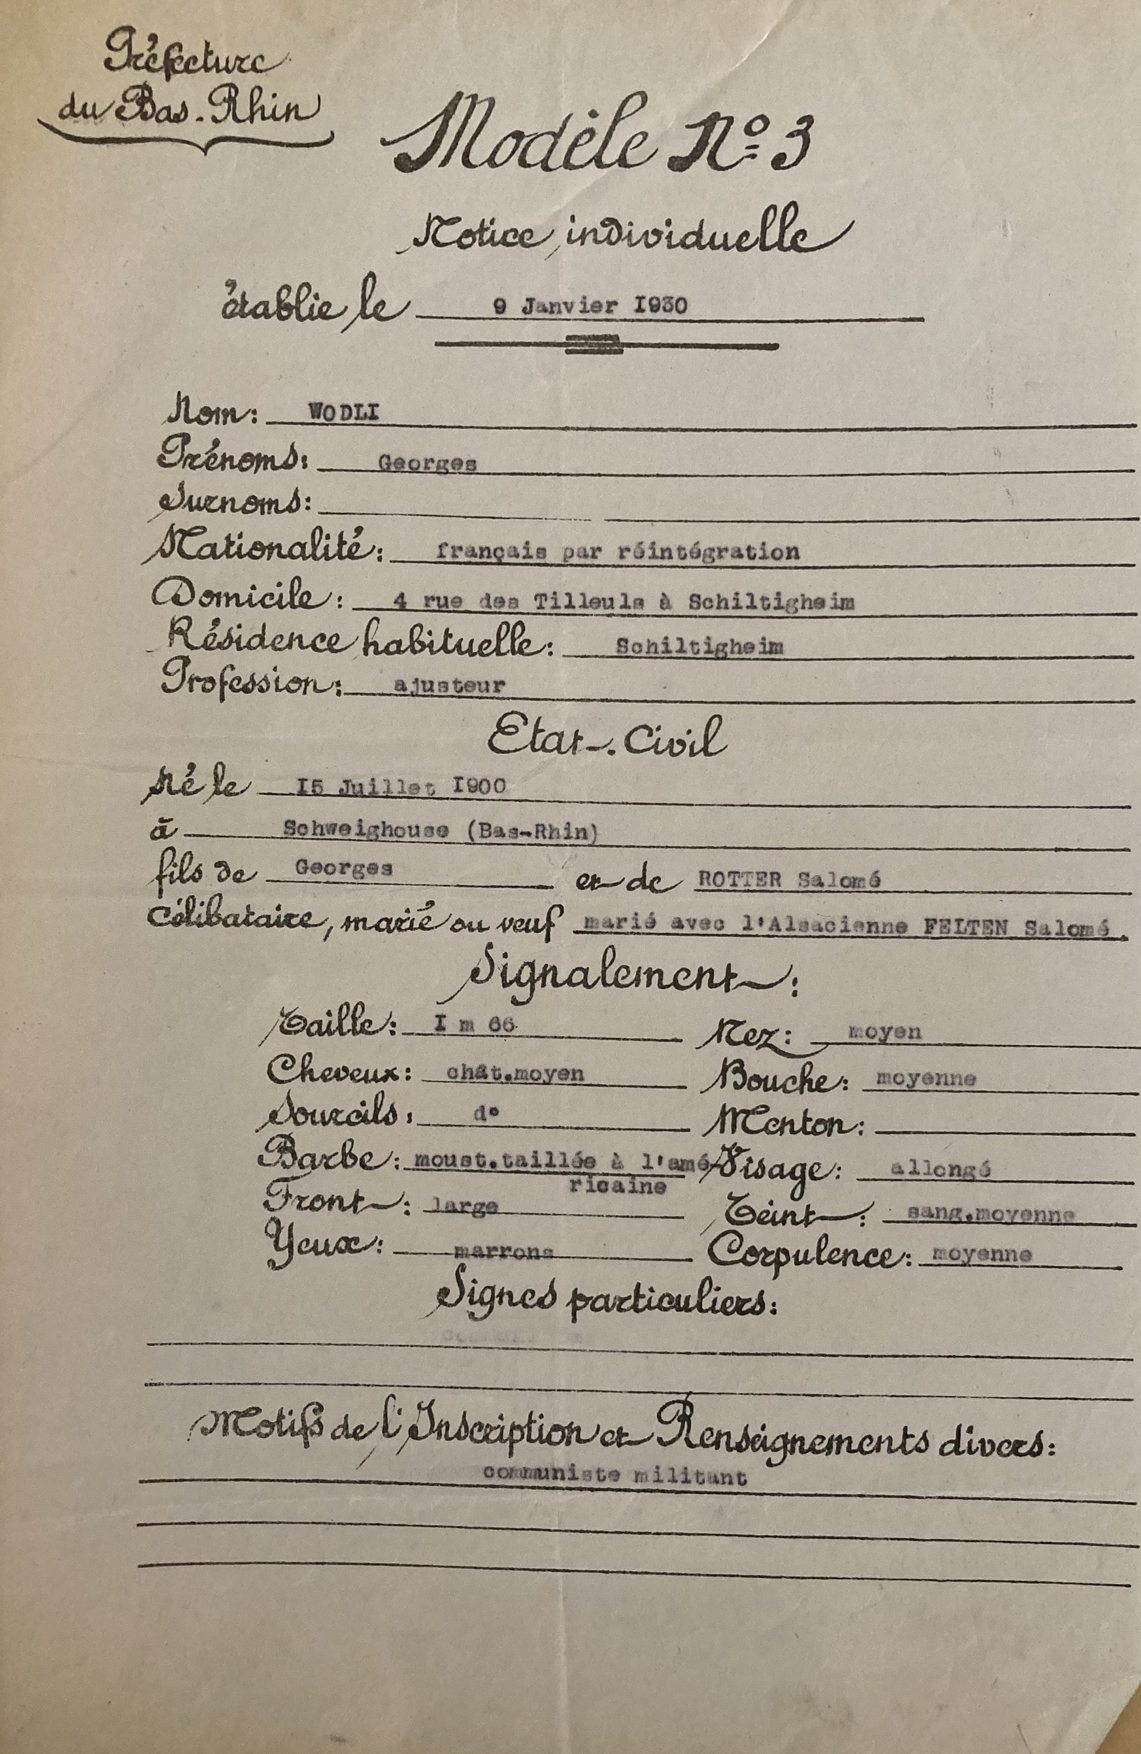 Préfecture
du Bas-Rhin
Modèle No 3
Notice individuelle
établie le 9 Janvier I930
Nom: WODLI
Prénoms: Georges
Surnoms:
Nationalité: français par réintégration
Domicile: 4 rue des Tilleuls à Schiltigheim
Résidence habituelle: Schiltigheim
Profession: ajusteur
Etat-Civil
Né le I5 Juillet I900
à Schweighouse (Bas-Rhin)
fils de Georges et de ROTTER Salomé
Célibataire, marié ou veuf marié avec l'Alsacienne FELTEN Salomé.
Signalement:
Taille: I m 66 Nez: moyen
Cheveux: chât.moyen Bouche: moyenne
Sourcils: d° Menton:
Barbe: moust.taillée à l'amé- Visage: allongé
ricaine
Front: large Teint: sang.moyenne
Yeux: marrons Corpulence: moyenne
Signes particuliers:
Motifs de l'Inscription et Renseignements divers:
communiste militant